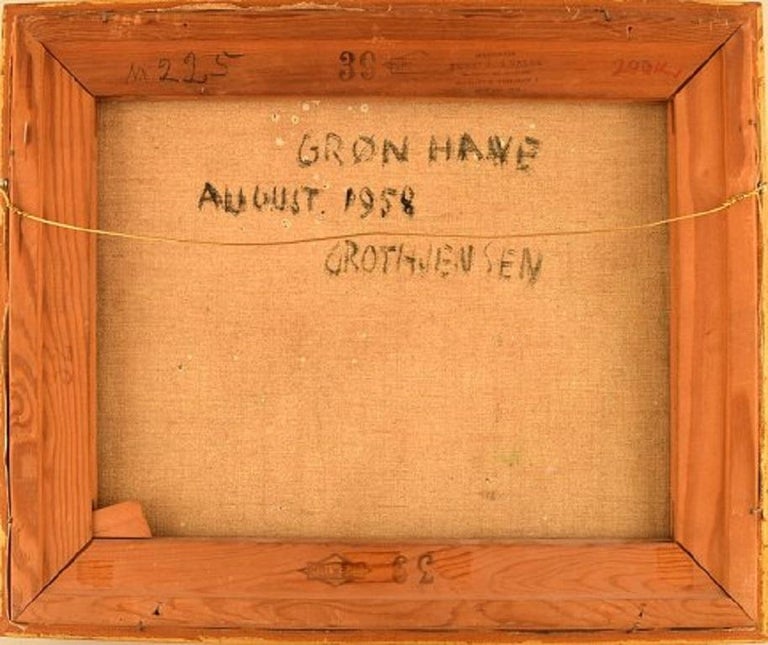 Nr 225
39
200 Kr
GRØN HAVE
AUGUST. 1958
GROTH JENSEN